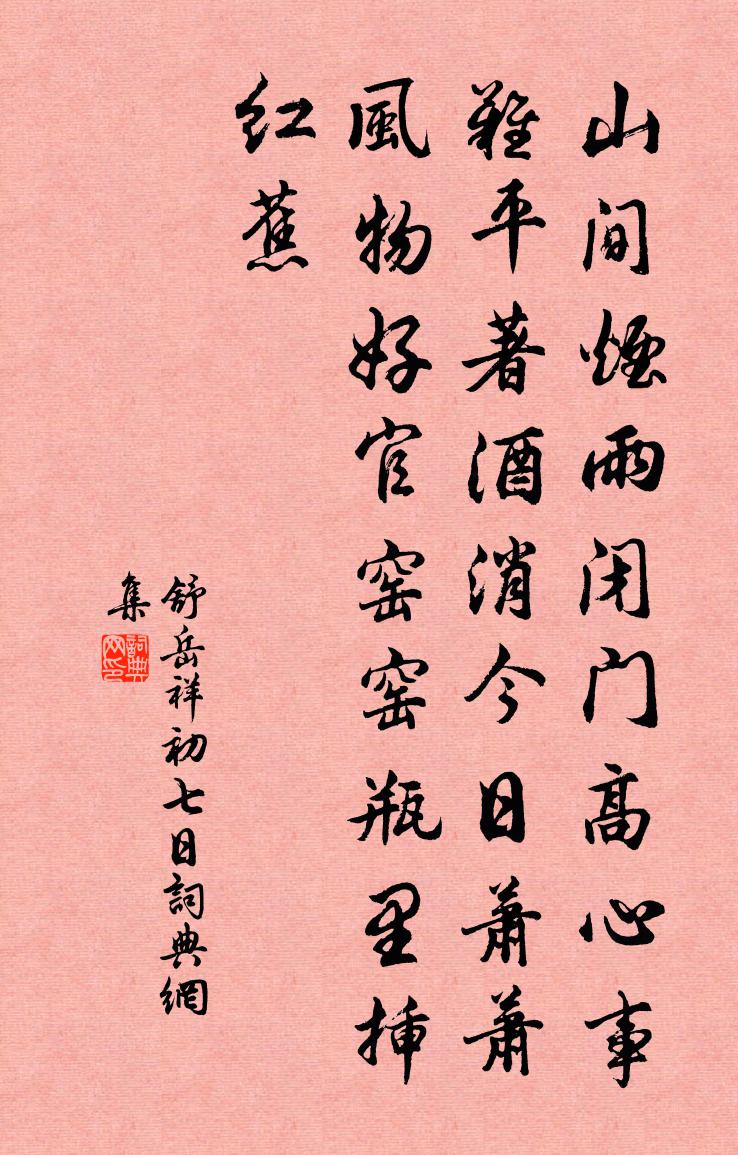 山間煙雨闭门高心事
難平著酒消今日蕭蕭
風物好官窑窑瓶里挿
红蕉
舒岳祥初七日詞典網
集
詞典網印